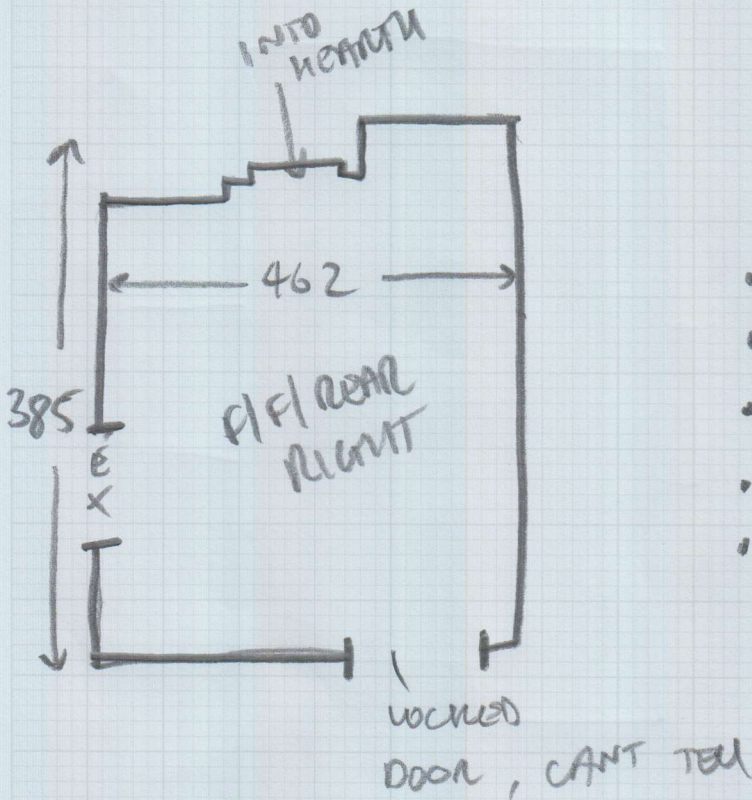 INTO
HEARTH
462
385
F/F/ REAR
RIGHT
EX
LOCKED
DOOR, CANT TELL